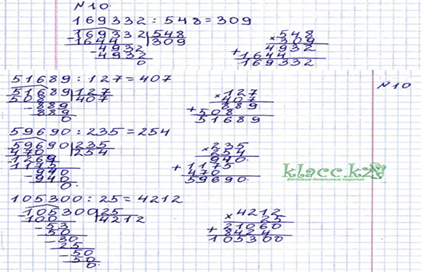 №10
169332 : 548 = 309
-169332 | 548
1644 | 309
-4932
4932
0
×548
309
4932
+1644
169332
51689 : 127 = 407
51689 | 127
508 | 407
-889
889
0
×127
407
889
+508
51689
№10
59690 : 235 = 254
59690 | 235
470 | 254
1269
1175
-940
940
0
×235
254
940
+1175
470
59690
klacc.kz
105300 : 25 = 4212
-105300 | 25
100 | 4212
-53
50
-30
25
-50
50
0
×4212
25
21060
+8424
105300